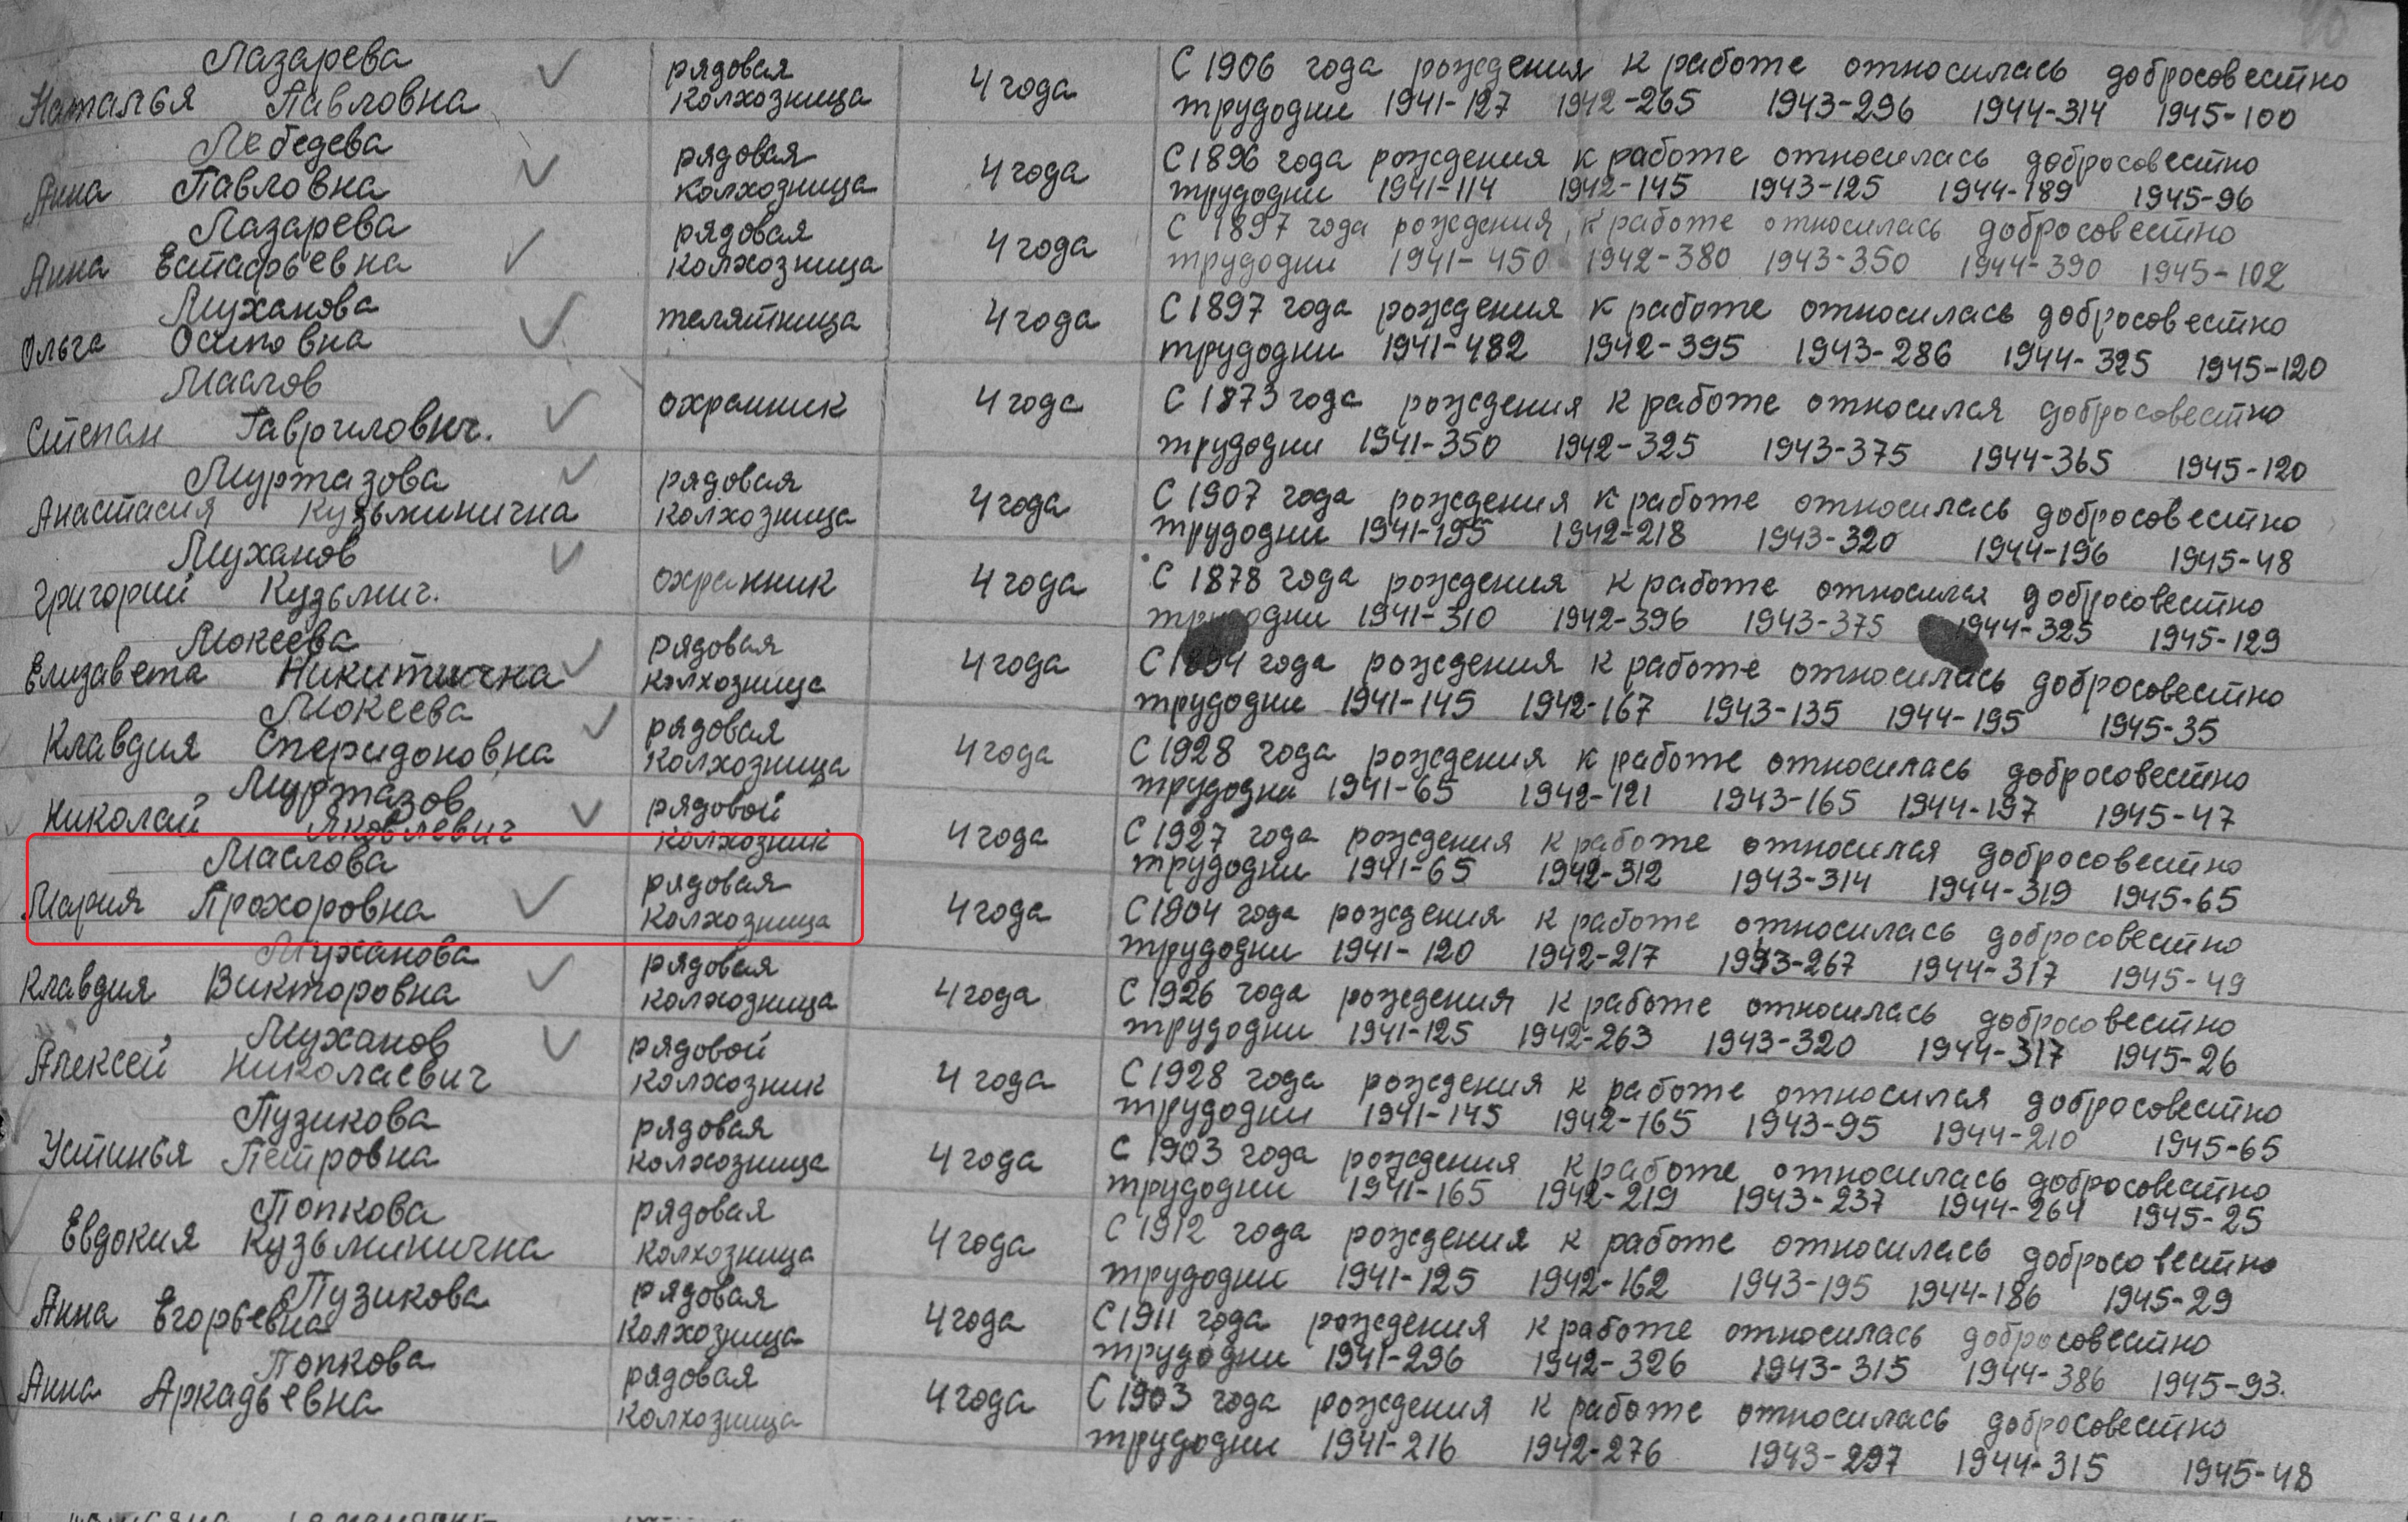 Лазарева
Наталья Павловна рядовая колхозница 4 года С 1906 года рождения к работе относилась добросовестно
трудодни 1941-127 1942-265 1943-296 1944-314 1945-100
Лебедева
Анна Павловна рядовая колхозница 4 года С 1896 года рождения к работе относилась добросовестно
трудодни 1941-114 1942-145 1943-125 1944-189 1945-96
Лазарева
Анна Естафьевна рядовая колхозница 4 года С 1897 года рождения, к работе относилась добросовестно
трудодни 1941-450 1942-380 1943-350 1944-390 1945-102
Муханова
Ольга Осиповна телятница 4 года С 1897 года рождения к работе относилась добросовестно
трудодни 1941-482 1942-395 1943-286 1944-325 1945-120
Маслов
Степан Гаврилович. охранник 4 года С 1873 года рождения к работе относился добросовестно
трудодни 1941-350 1942-325 1943-375 1944-365 1945-120
Муртазова
Анастасия Кузьминична рядовая колхозница 4 года С 1907 года рождения к работе относилась добросовестно
трудодни 1941-195 1942-218 1943-320 1944-196 1945-48
Муханов
Григорий Кузьмич. охранник 4 года С 1878 года рождения к работе относился добросовестно
трудодни 1941-310 1942-396 1943-375 1944-325 1945-129
Мокеева
Елизавета Никитична рядовая колхозница 4 года С 1894 года рождения к работе относилась добросовестно
трудодни 1941-145 1942-167 1943-135 1944-195 1945-35
Мокеева
Клавдия Сперидоновна рядовая колхозница 4 года С 1928 года рождения к работе относилась добросовестно
трудодни 1941-65 1942-121 1943-165 1944-197 1945-47
Муртазов
Николай Яковлевич рядовой колхозник 4 года С 1927 года рождения к работе относился добросовестно
трудодни 1941-65 1942-312 1943-314 1944-319 1945-65
Маслова
Мария Прохоровна рядовая колхозница 4 года С 1904 года рождения к работе относилась добросовестно
трудодни 1941-120 1942-217 1943-267 1944-317 1945-49
Муханова
Клавдия Викторовна рядовая колхозница 4 года С 1926 года рождения к работе относилась добросовестно
трудодни 1941-125 1942-263 1943-320 1944-317 1945-26
Муханов
Алексей Николаевич рядовой колхозник 4 года С 1928 года рождения к работе относился добросовестно
трудодни 1941-145 1942-165 1943-95 1944-210 1945-65
Пузикова
Устинья Петровна рядовая колхозница 4 года С 1903 года рождения к работе относилась добросовестно
трудодни 1941-165 1942-219 1943-237 1944-264 1945-25
Попкова
Евдокия Кузьминична рядовая колхозница 4 года С 1912 года рождения к работе относилась добросовестно
трудодни 1941-125 1942-162 1943-195 1944-186 1945-29
Пузикова
Анна Егорьевна рядовая колхозница 4 года С 1911 года рождения к работе относилась добросовестно
трудодни 1941-296 1942-326 1943-315 1944-386 1945-93.
Попкова
Анна Аркадьевна рядовая колхозница 4 года С 1903 года рождения к работе относилась добросовестно
трудодни 1941-216 1942-276 1943-297 1944-315 1945-48